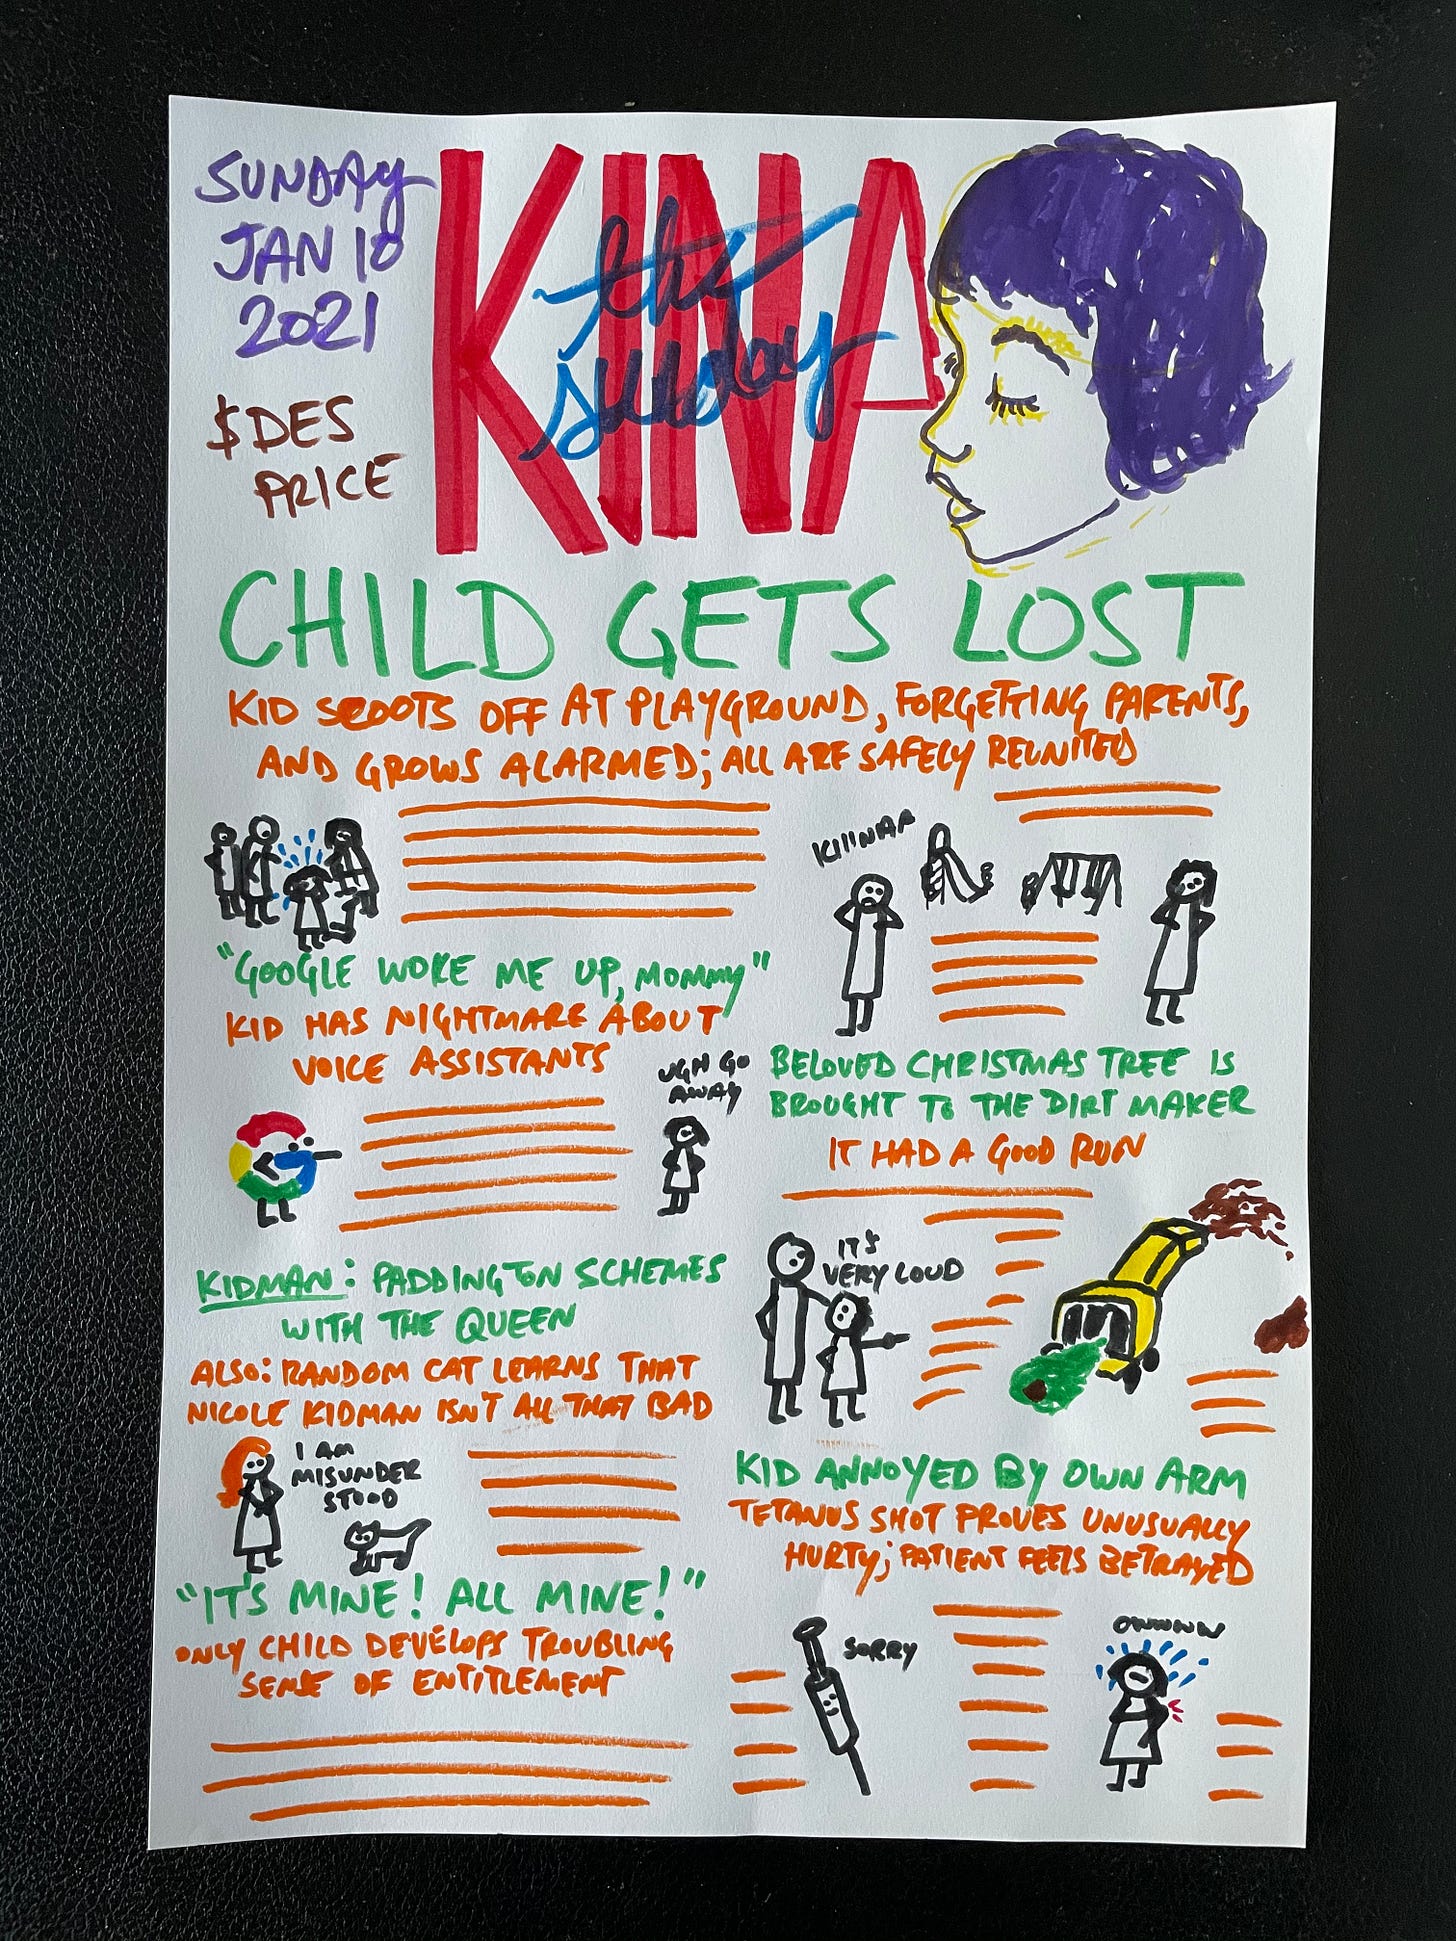 SUNDAY
JAN 10
2021
$DES
PRICE
KINA
the
sunday
CHILD GETS LOST
KID SCOOTS OFF AT PLAYGROUND, FORGETTING PARENTS,
AND GROWS ALARMED; ALL ARE SAFELY REUNITED
KIIINAA
"GOOGLE WOKE ME UP, MOMMY"
KID HAS NIGHTMARE ABOUT
VOICE ASSISTANTS
UGH GO
AWAY
BELOVED CHRISTMAS TREE IS
BROUGHT TO THE DIRT MAKER
IT HAD A GOOD RUN
IT'S
VERY LOUD
KIDMAN: PADDINGTON SCHEMES
WITH THE QUEEN
ALSO: RANDOM CAT LEARNS THAT
NICOLE KIDMAN ISN'T ALL THAT BAD
I AM
MISUNDER
STOOD
KID ANNOYED BY OWN ARM
TETANUS SHOT PROVES UNUSUALLY
HURTY; PATIENT FEELS BETRAYED
SORRY
OWWWW
"IT'S MINE! ALL MINE!"
ONLY CHILD DEVELOPS TROUBLING
SENSE OF ENTITLEMENT